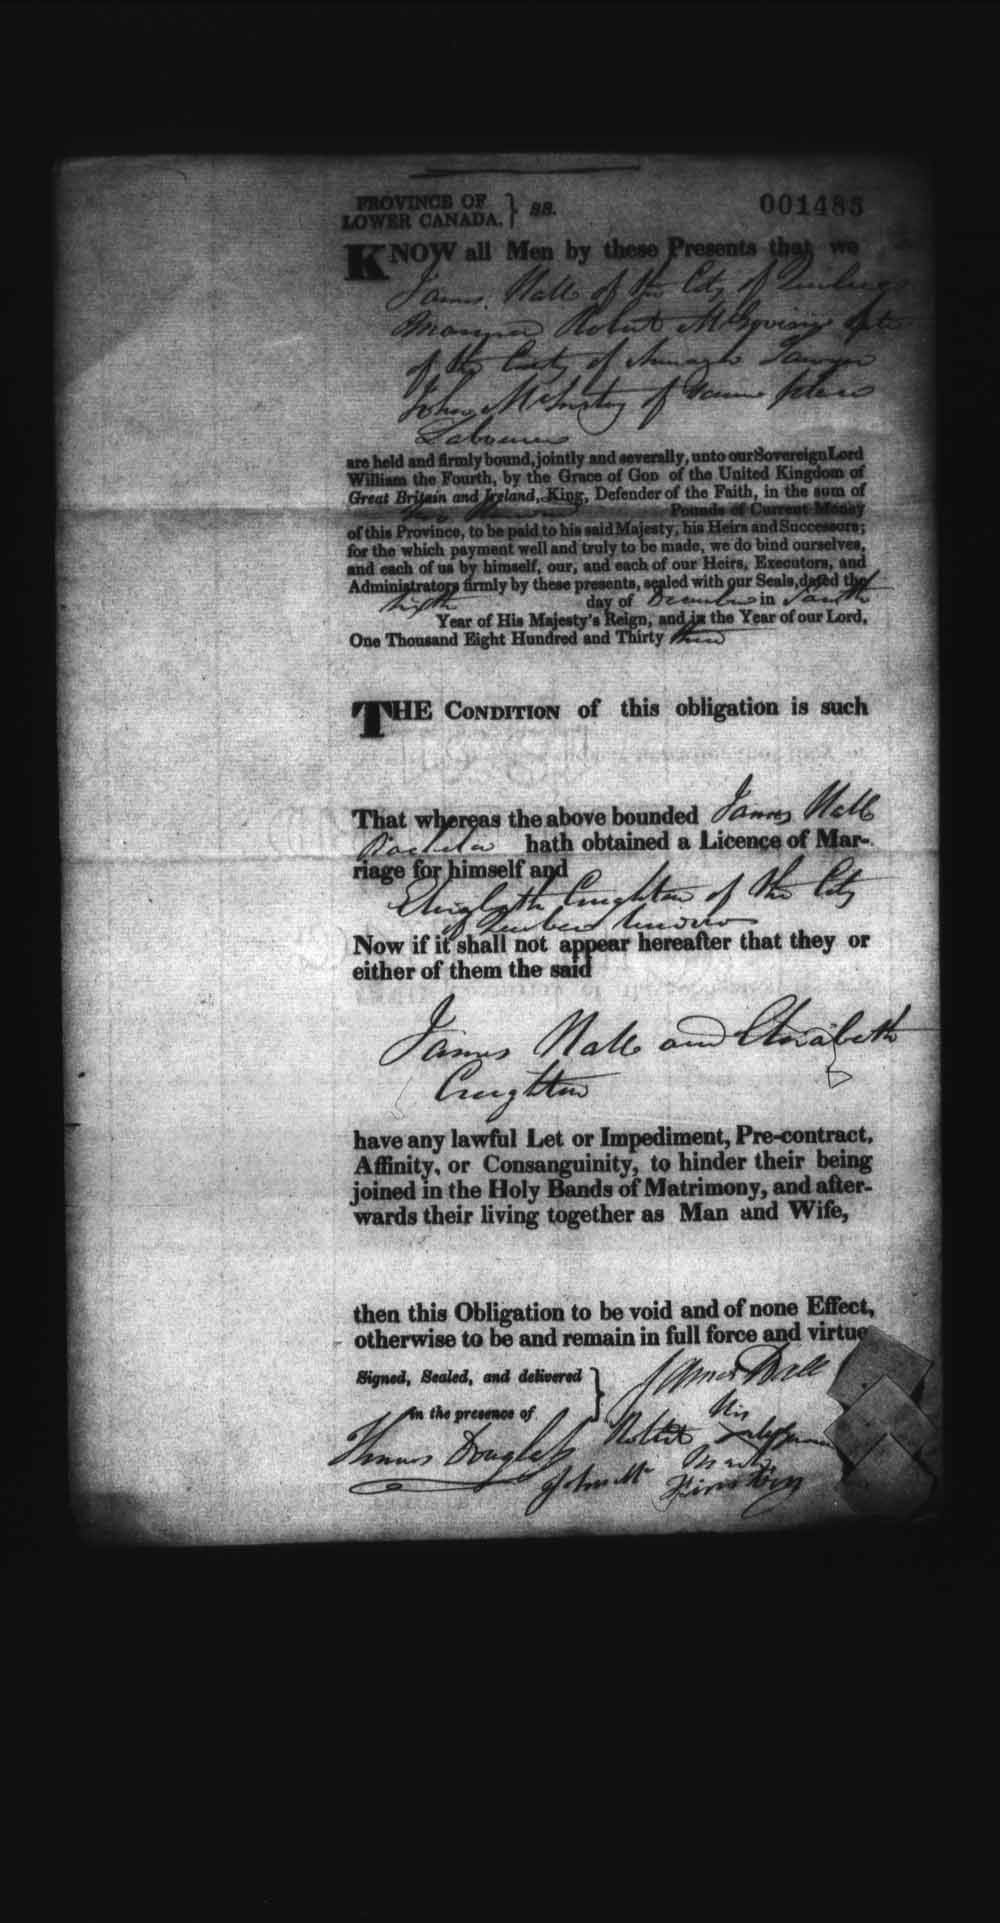 PROVINCE OF
LOWER CANADA. } ss.
001485
KNOW all Men by these Presents that we
James Hall of the City of Quebec
Robert
of the City of
John of same place
Labourer
are held and firmly bound, jointly and severally, unto our Sovereign Lord
William the Fourth, by the Grace of GOD of the United Kingdom of
Great Britain and Ireland, King, Defender of the Faith, in the sum of
Pounds of Current Money
of this Province, to be paid to his said Majesty, his Heirs and Successors;
for the which payment well and truly to be made, we do bind ourselves,
and each of us by himself, our, and each of our Heirs, Executors, and
Administrators firmly by these presents, sealed with our Seals, dated the
day of December in Fourth
Year of His Majesty's Reign, and in the Year of our Lord,
One Thousand Eight Hundred and Thirty three
THE CONDITION of this obligation is such
That whereas the above bounded James Hall
Bachelor hath obtained a Licence of Mar-
riage for himself and
Elizabeth Creighton of the City
of Quebec
Now if it shall not appear hereafter that they or
either of them the said
James Hall and Elizabeth
Creighton
have any lawful Let or Impediment, Pre-contract,
Affinity, or Consanguinity, to hinder their being
joined in the Holy Bands of Matrimony, and after-
wards their living together as Man and Wife,
then this Obligation to be void and of none Effect,
otherwise to be and remain in full force and virtue
Signed, Sealed, and delivered }
in the presence of
James Hall
his
Thomas Douglass
Robert
mark
John Mc